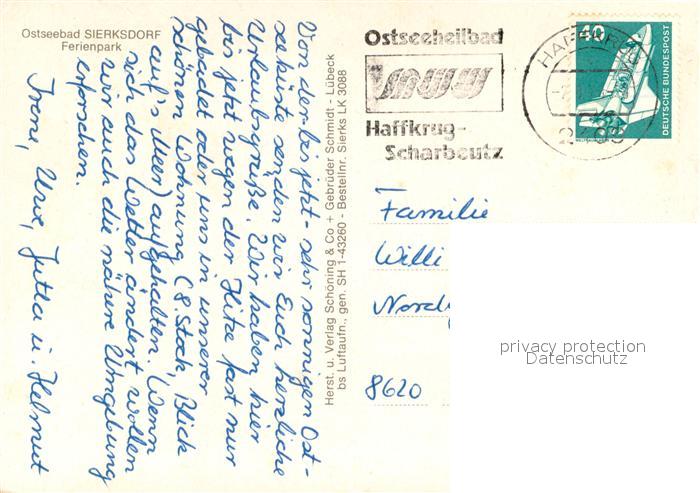 Ostseebad SIERKSDORF
Ferienpark
Von der bis jetzt - sehr sonnigen Ost-
seeküste senden wir Euch herzliche
Urlaubsgrüße. Wir haben hier
bis jetzt wegen der Hitze fast nur
gebadet oder uns in unserer
schönen Wohnung (8. Stock, Blick
auf's Meer) aufgehalten. Wenn
sich das Wetter ändert wollen
wir auch die nähere Umgebung
erforschen.
Irene, Uwe, Jutta u. Helmut
Herst. u. Verlag Schöning & Co + Gebrüder Schmidt - Lübeck
bs Luftaufn., gen. SH 1-43260 - Bestellnr. Sierks LK 3088
Ostseeheilbad
Haffkrug-
Scharbeutz
HAFFKRUG
40
DEUTSCHE BUNDESPOST
Familie
Willi
8620
privacy protection
Datenschutz